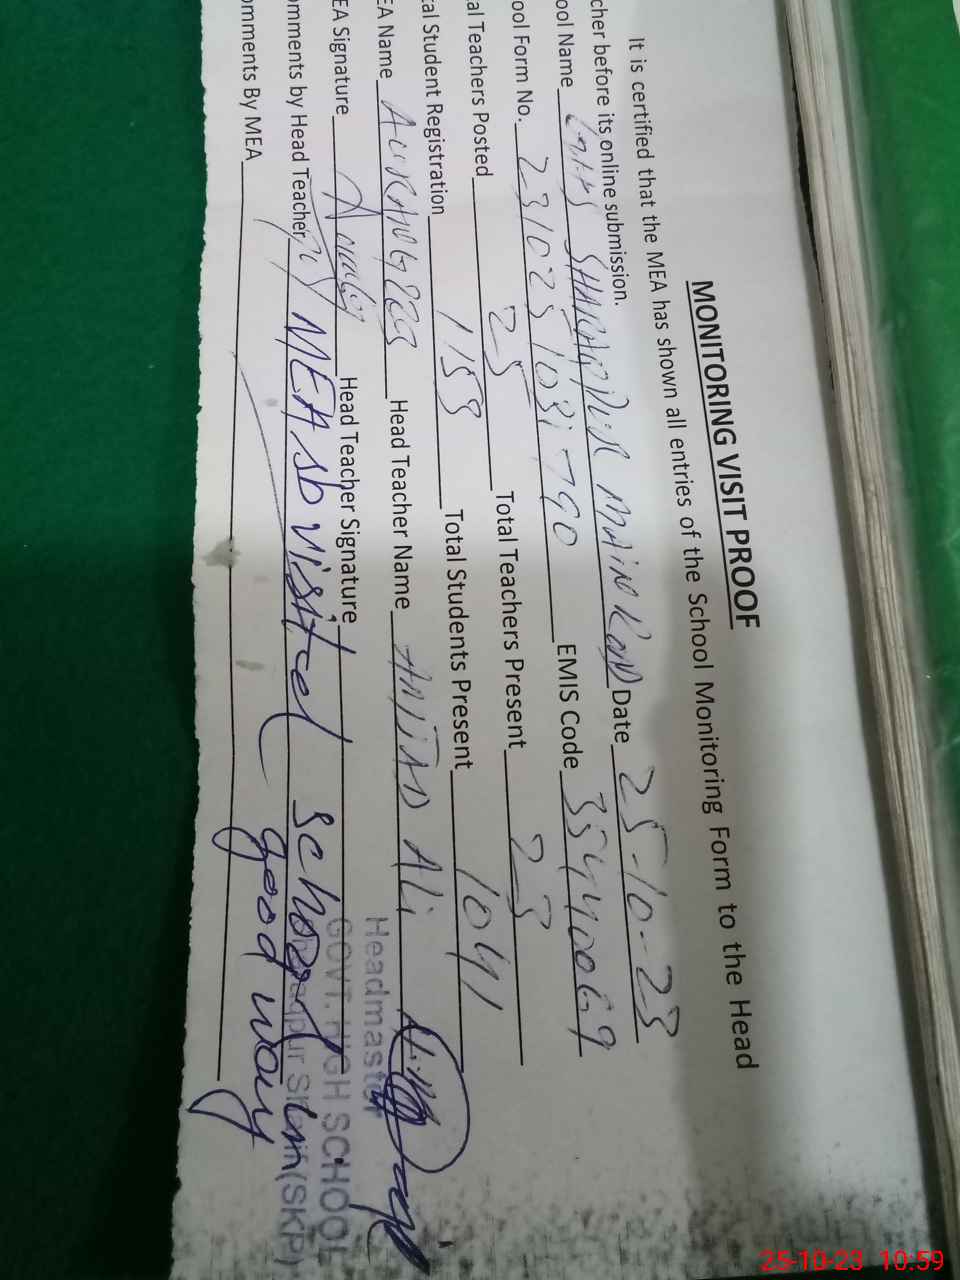 MONITORING VISIT PROOF
It is certified that the MEA has shown all entries of the School Monitoring Form to the Head
cher before its online submission.
ool Name SHARAQPUR MAIN ROAD Date 25-10-23
ool Form No. EMIS Code 35440069
al Teachers Posted 25 Total Teachers Present 23
al Student Registration 1153 Total Students Present 1041
EA Name AURANGZEB Head Teacher Name AMJAD Ali
EA Signature Head Teacher Signature
omments by Head Teacher MEA sb visited school in
good way
omments By MEA
Headmaster
GOVT. HIGH SCHOOL
(SKP)
25-10-23 10:59